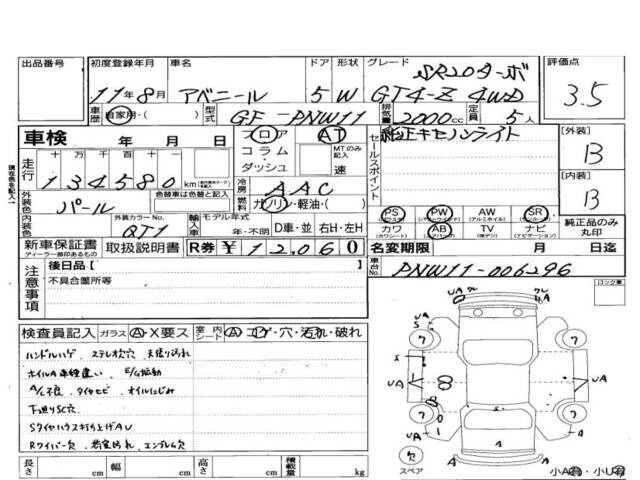 出品番号 初度登録年月 車名 ドア 形状 グレード 評価点
SR20ターボ
11年8月 アベニール 5 W GT4-Z 4WD 3.5
車歴 自家用・( ) 型式 GF-PNW11 排気量 2000cc 定員 5人
車検 年 月 日 フロア AT 純正キセノンライト 【外装】
コラム MTのみ記入 B
ダッシュ 速 セールスポイント
走行 十万 万 千 百 十 一
134580 km 冷房 AAC 【内装】
外装色 パール 色替車は色替と記入 燃料 ガソリン・軽油・( ) B
PS PW AW SR
内装色 外装カラーNo. QT1 輸入車 モデル年式 年・不明 D車・並 右H・左H カワ AB TV ナビ 純正品のみ丸印
新車保証書 取扱説明書 R券 ¥12,060 名変期限 月 日迄
ディーラー捺印あるもの
車台No. PNW11-006296
現在色を記入
注意事項 後日品・【
不具合箇所等
ロック車
検査員記入 ガラス A・X要ス 室内シート A・コゲ・穴・汚れ・破れ
ハンドルハゲ ステレオ欠穴 天張り汚れ
ホイルA 車種違い E/G振動
A/C不良 タイヤヒビ オイルにじみ
下廻りSC穴
SタイヤハウスおちよげAU
Rワイパー欠 荷室汚れ エンブレム欠
長さ cm 幅 cm 高さ cm 積載量 kg
UA クレ クレ UA
S 7 7
S
UA UA
A
7 0 S 7
UA 1 A
欠 スペア A A A
小A有・小U有